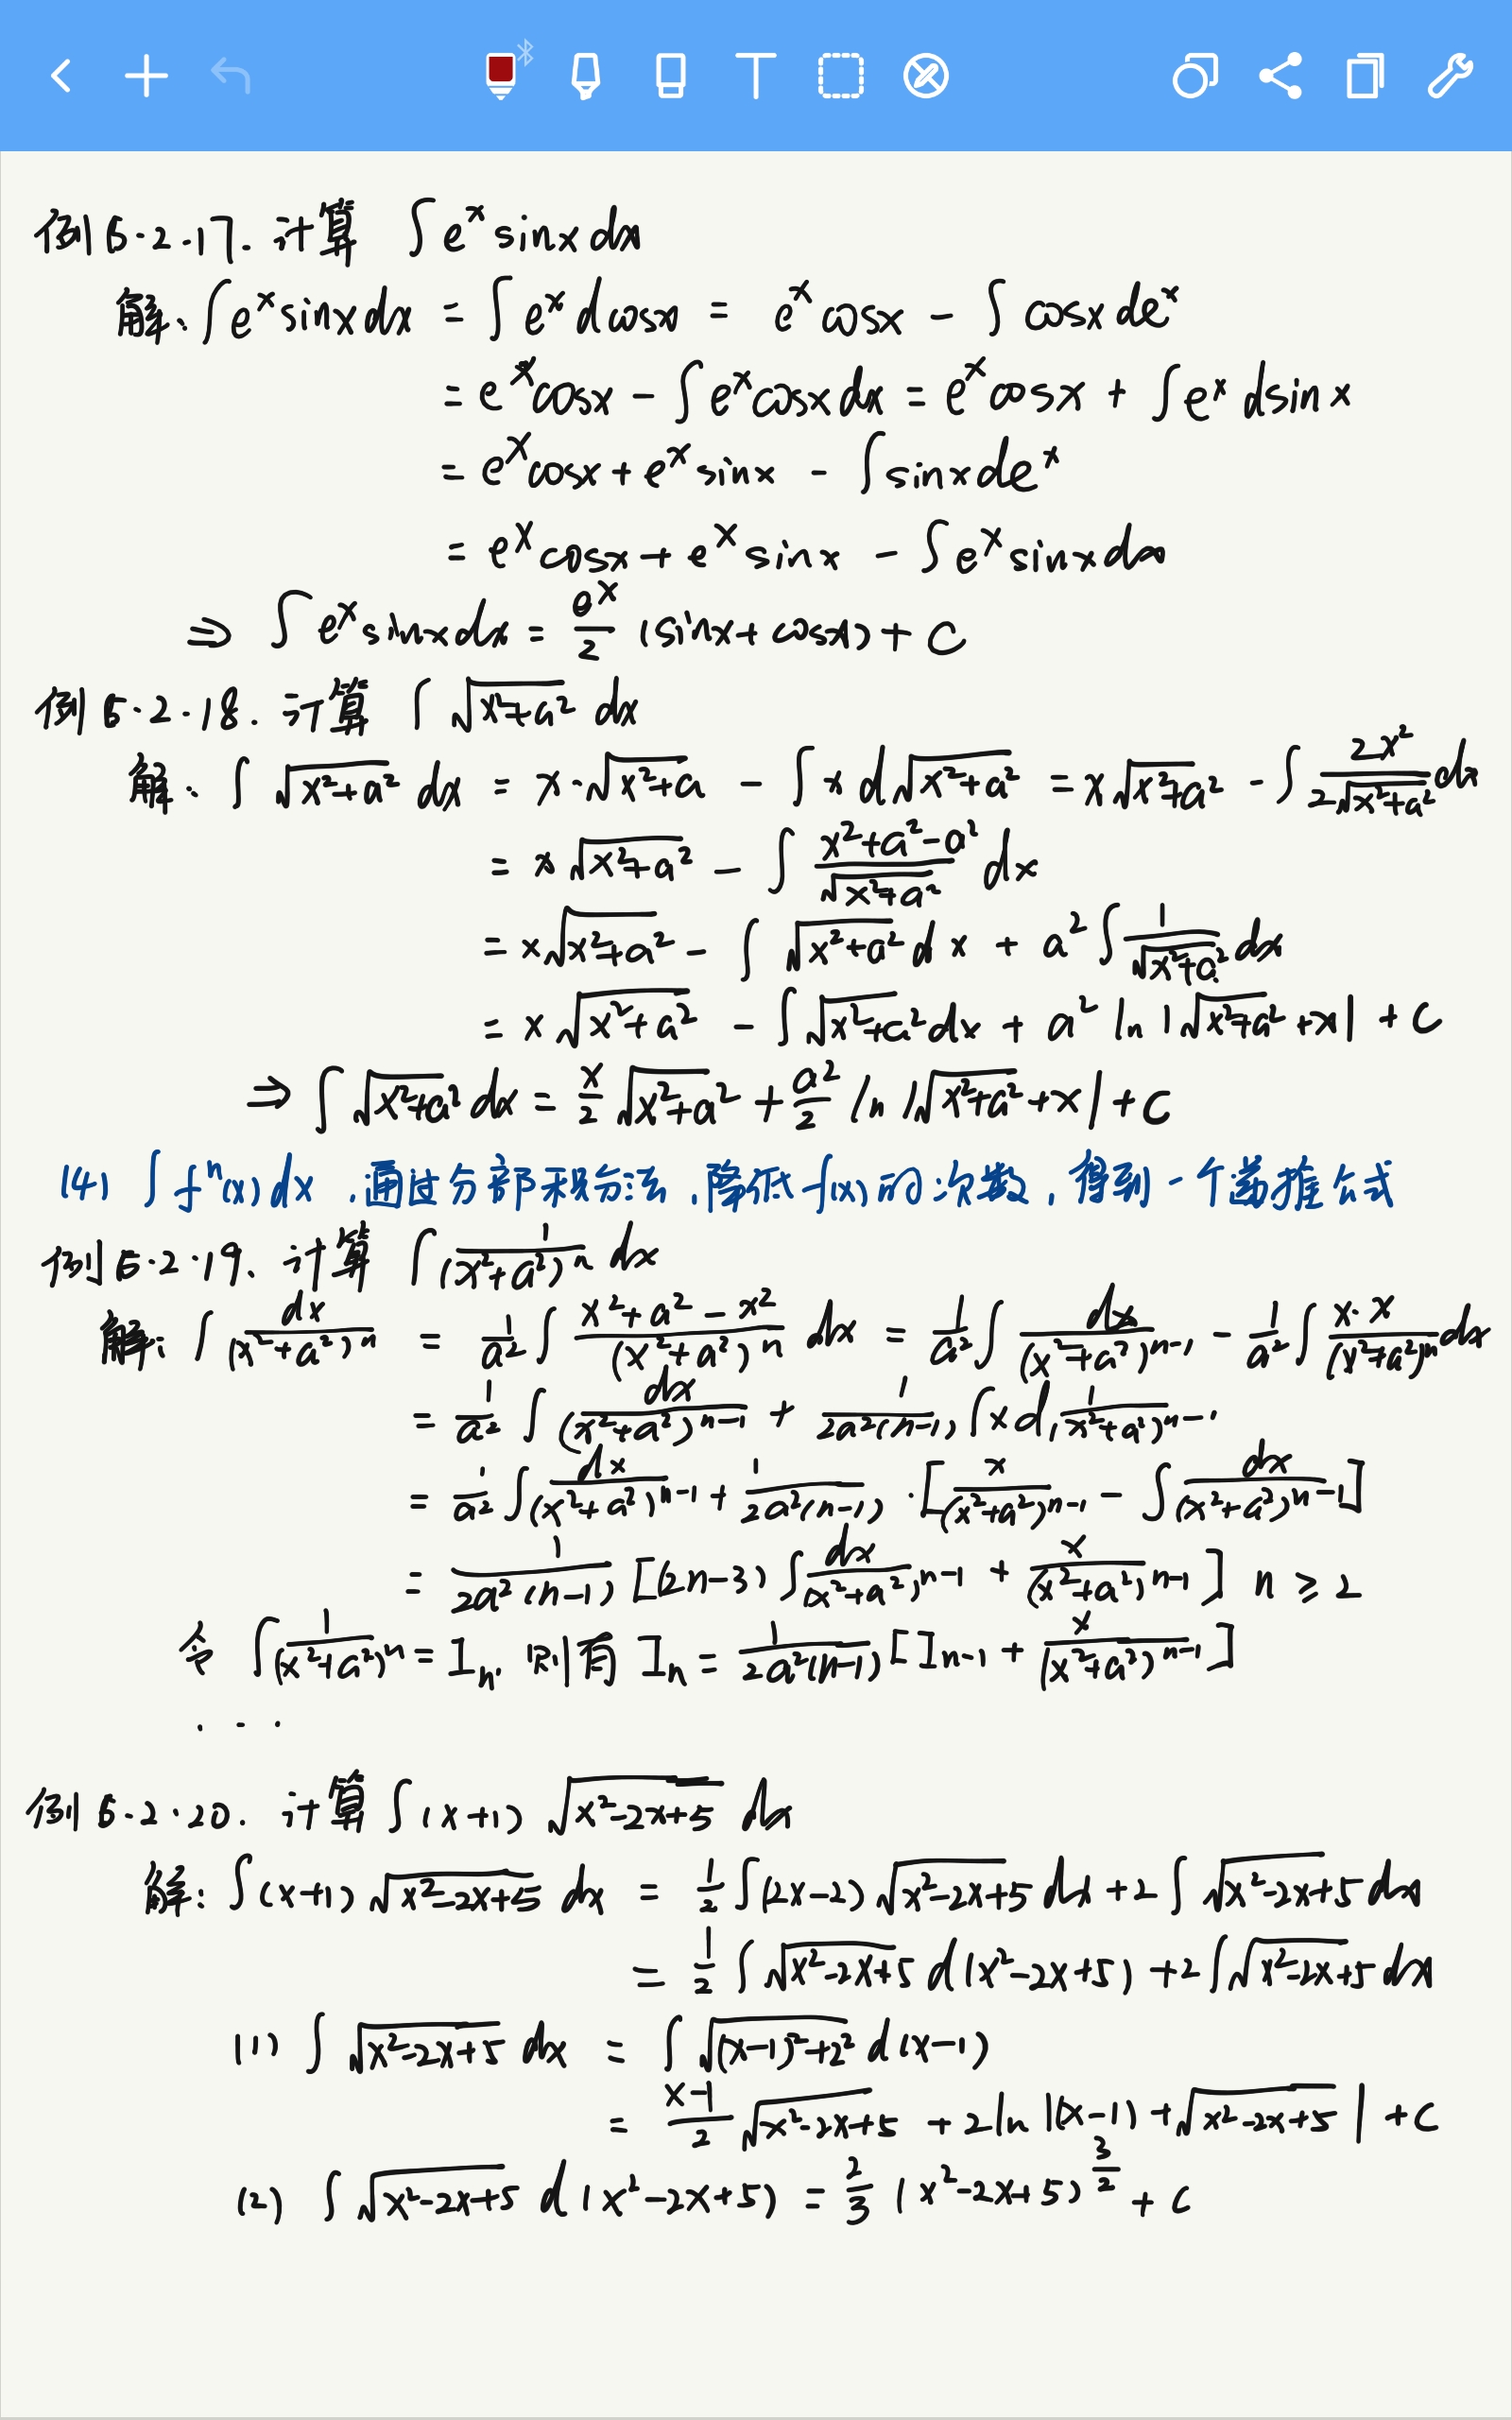 例6.2.17. 计算 ∫e^x sinx dx
解: ∫e^x sinx dx = ∫e^x d cosx = e^x cosx - ∫cosx de^x
= e^x cosx - ∫e^x cosx dx = e^x cosx + ∫e^x dsinx
= e^x cosx + e^x sinx - ∫sinx de^x
= e^x cosx + e^x sinx - ∫e^x sinx dx
⇒ ∫e^x sinx dx = e^x/2 (sinx + cosx) + C
例6.2.18. 计算 ∫√(x²+a²) dx
解: ∫√(x²+a²) dx = x·√(x²+a) - ∫x d√(x²+a²) = x√(x²+a²) - ∫2x²/(2√(x²+a²)) dx
= x√(x²+a²) - ∫(x²+a²-a²)/√(x²+a²) dx
= x√(x²+a²) - ∫√(x²+a²) dx + a²∫1/√(x²+a²) dx
= x√(x²+a²) - ∫√(x²+a²) dx + a² ln|√(x²+a²)+x| + C
⇒ ∫√(x²+a²) dx = x/2 √(x²+a²) + a²/2 ln|√(x²+a²)+x| + C
(4) ∫f^n(x)dx,通过分部积分法,降低f(x)的次数,得到一个递推公式
例6.2.19. 计算 ∫1/(x²+a²)^n dx
解: ∫dx/(x²+a²)^n = 1/a² ∫(x²+a²-x²)/(x²+a²)^n dx = 1/a² ∫dx/(x²+a²)^(n-1) - 1/a² ∫x·x/(x²+a²)^n dx
= 1/a² ∫dx/(x²+a²)^(n-1) + 1/(2a²(n-1)) ∫x d 1/(x²+a²)^(n-1)
= 1/a² ∫dx/(x²+a²)^(n-1) + 1/(2a²(n-1)) ·[x/(x²+a²)^(n-1) - ∫dx/(x²+a²)^(n-1)]
= 1/(2a²(n-1)) [(2n-3)∫dx/(x²+a²)^(n-1) + x/(x²+a²)^(n-1)] n ≥ 2
令 ∫1/(x²+a²)^n = I_n, 则有 I_n = 1/(2a²(n-1)) [I_(n-1) + x/(x²+a²)^(n-1)]
...
例6.2.20. 计算 ∫(x+1)√(x²-2x+5) dx
解: ∫(x+1)√(x²-2x+5) dx = 1/2 ∫(2x-2)√(x²-2x+5) dx + 2∫√(x²-2x+5) dx
= 1/2 ∫√(x²-2x+5) d(x²-2x+5) + 2∫√(x²-2x+5) dx
(1) ∫√(x²-2x+5) dx = ∫√((x-1)²+2²) d(x-1)
= (x-1)/2 √(x²-2x+5) + 2ln|(x-1)+√(x²-2x+5)| + C
(2) ∫√(x²-2x+5) d(x²-2x+5) = 2/3 (x²-2x+5)^(3/2) + C